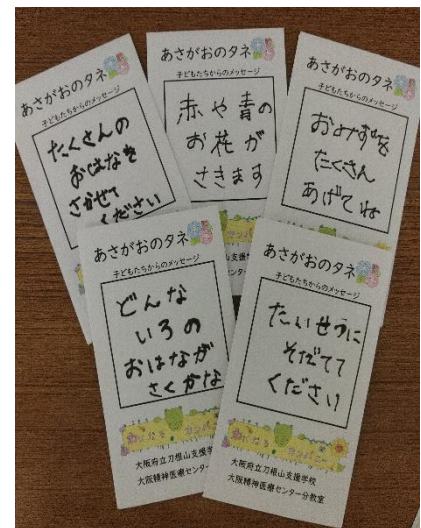 あさがおのタネ
子どもたちからのメッセージ
たくさんの
おはなを
さかせて
ください
あさがおのタネ
子どもたちからのメッセージ
赤や青の
お花が
さきます
あさがおのタネ
子どもたちからのメッセージ
おみずを
たくさん
あげてね
あさがおのタネ
子どもたちからのメッセージ
どんな
いろの
おはなが
さくかな
大阪府立刀根山支援学校
大阪精神医療センター分教室
あさがおのタネ
子どもたちからのメッセージ
たいせつに
そだてて
ください
カンパニー
大阪府立刀根山支援学校
大阪精神医療センター分教室